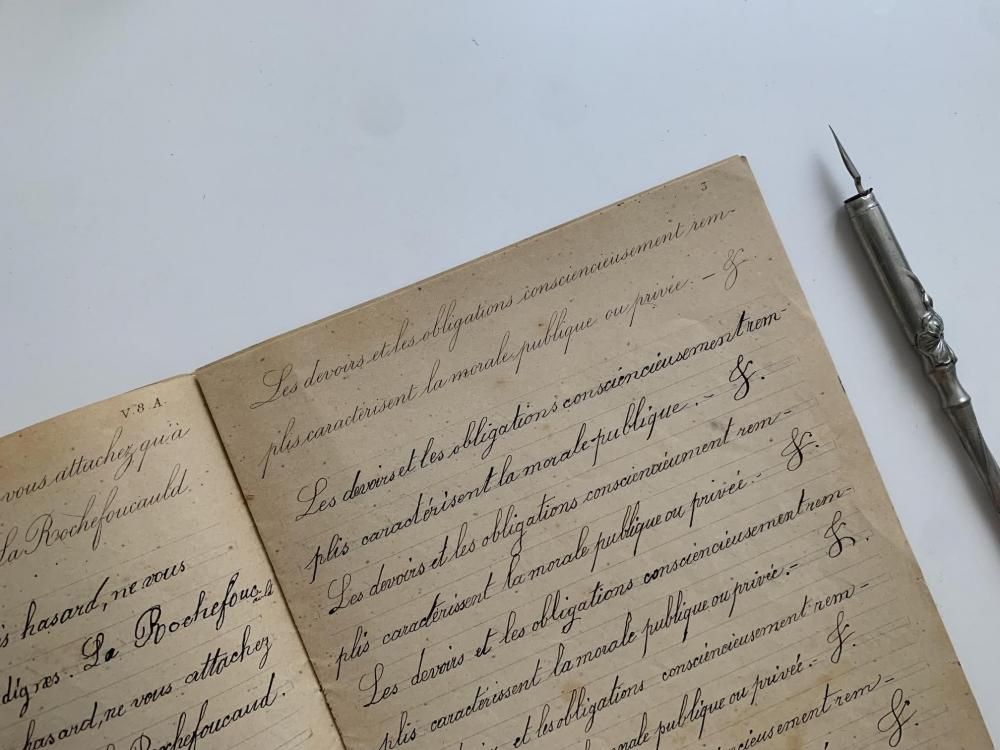 V.8.A.
vous attachez qu'à
La Rochefoucauld
hasard, ne vous
dignes. La Rochefouc-ld
hasard, ne vous attachez
Rochefoucaud.
3
Les devoirs et les obligations consciencieusement rem-
plis caractérisent la morale publique ou privée. — &.
Les devoirs et les obligations consciencieusement rem-
plis caractérisent la morale publique. — &.
Les devoirs et les obligations consciencieument rem-
plis caractérissent la morale publique ou privée. — &.
Les devoirs et les obligations consciencieusement rem-
plis caractérissent la morale publique ou privée. — &.
et les obligations consciencieusement rem-
publique ou privée. — &.
rem-
&.